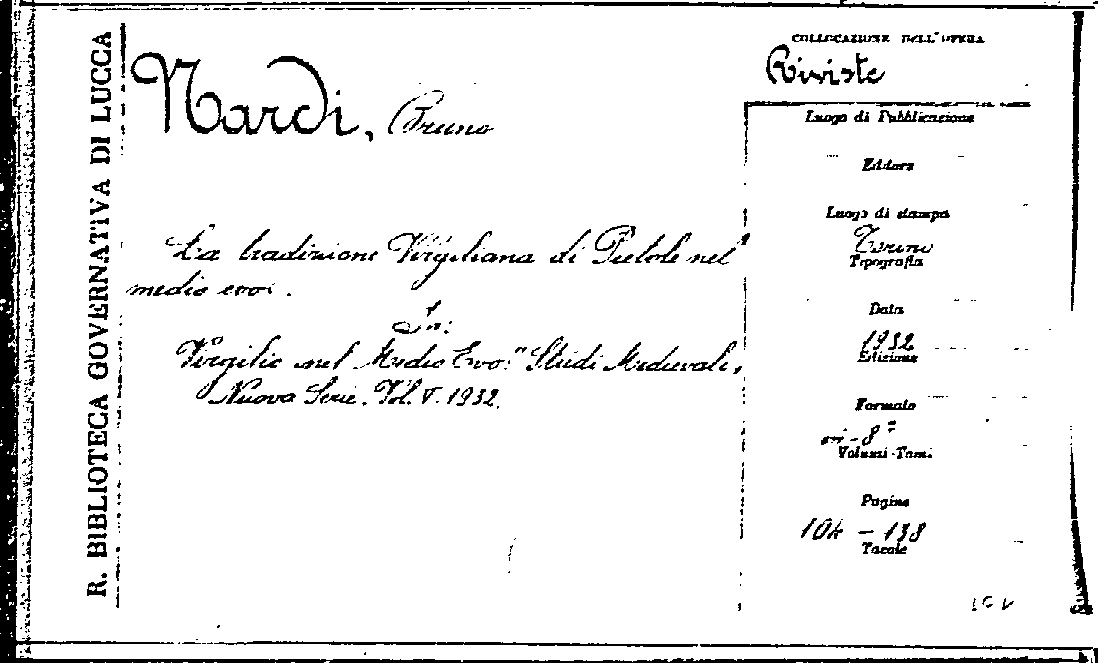 R. BIBLIOTECA GOVERNATIVA DI LUCCA
Nardi, Bruno
La tradizione Virgiliana di Pietole nel
medio evo.
In:
Virgilio nel Medio Evo." Studi Medievali,
Nuova Serie. Vol. V. 1932.
COLLOCAZIONE DELL'OPERA
Riviste
Luogo di Pubblicazione
Editore
Luogo di stampa
Torino
Tipografia
Data
1932
Edizione
Formato
in-8°
Volumi-Tomi
Pagine
104 - 138
Tavole